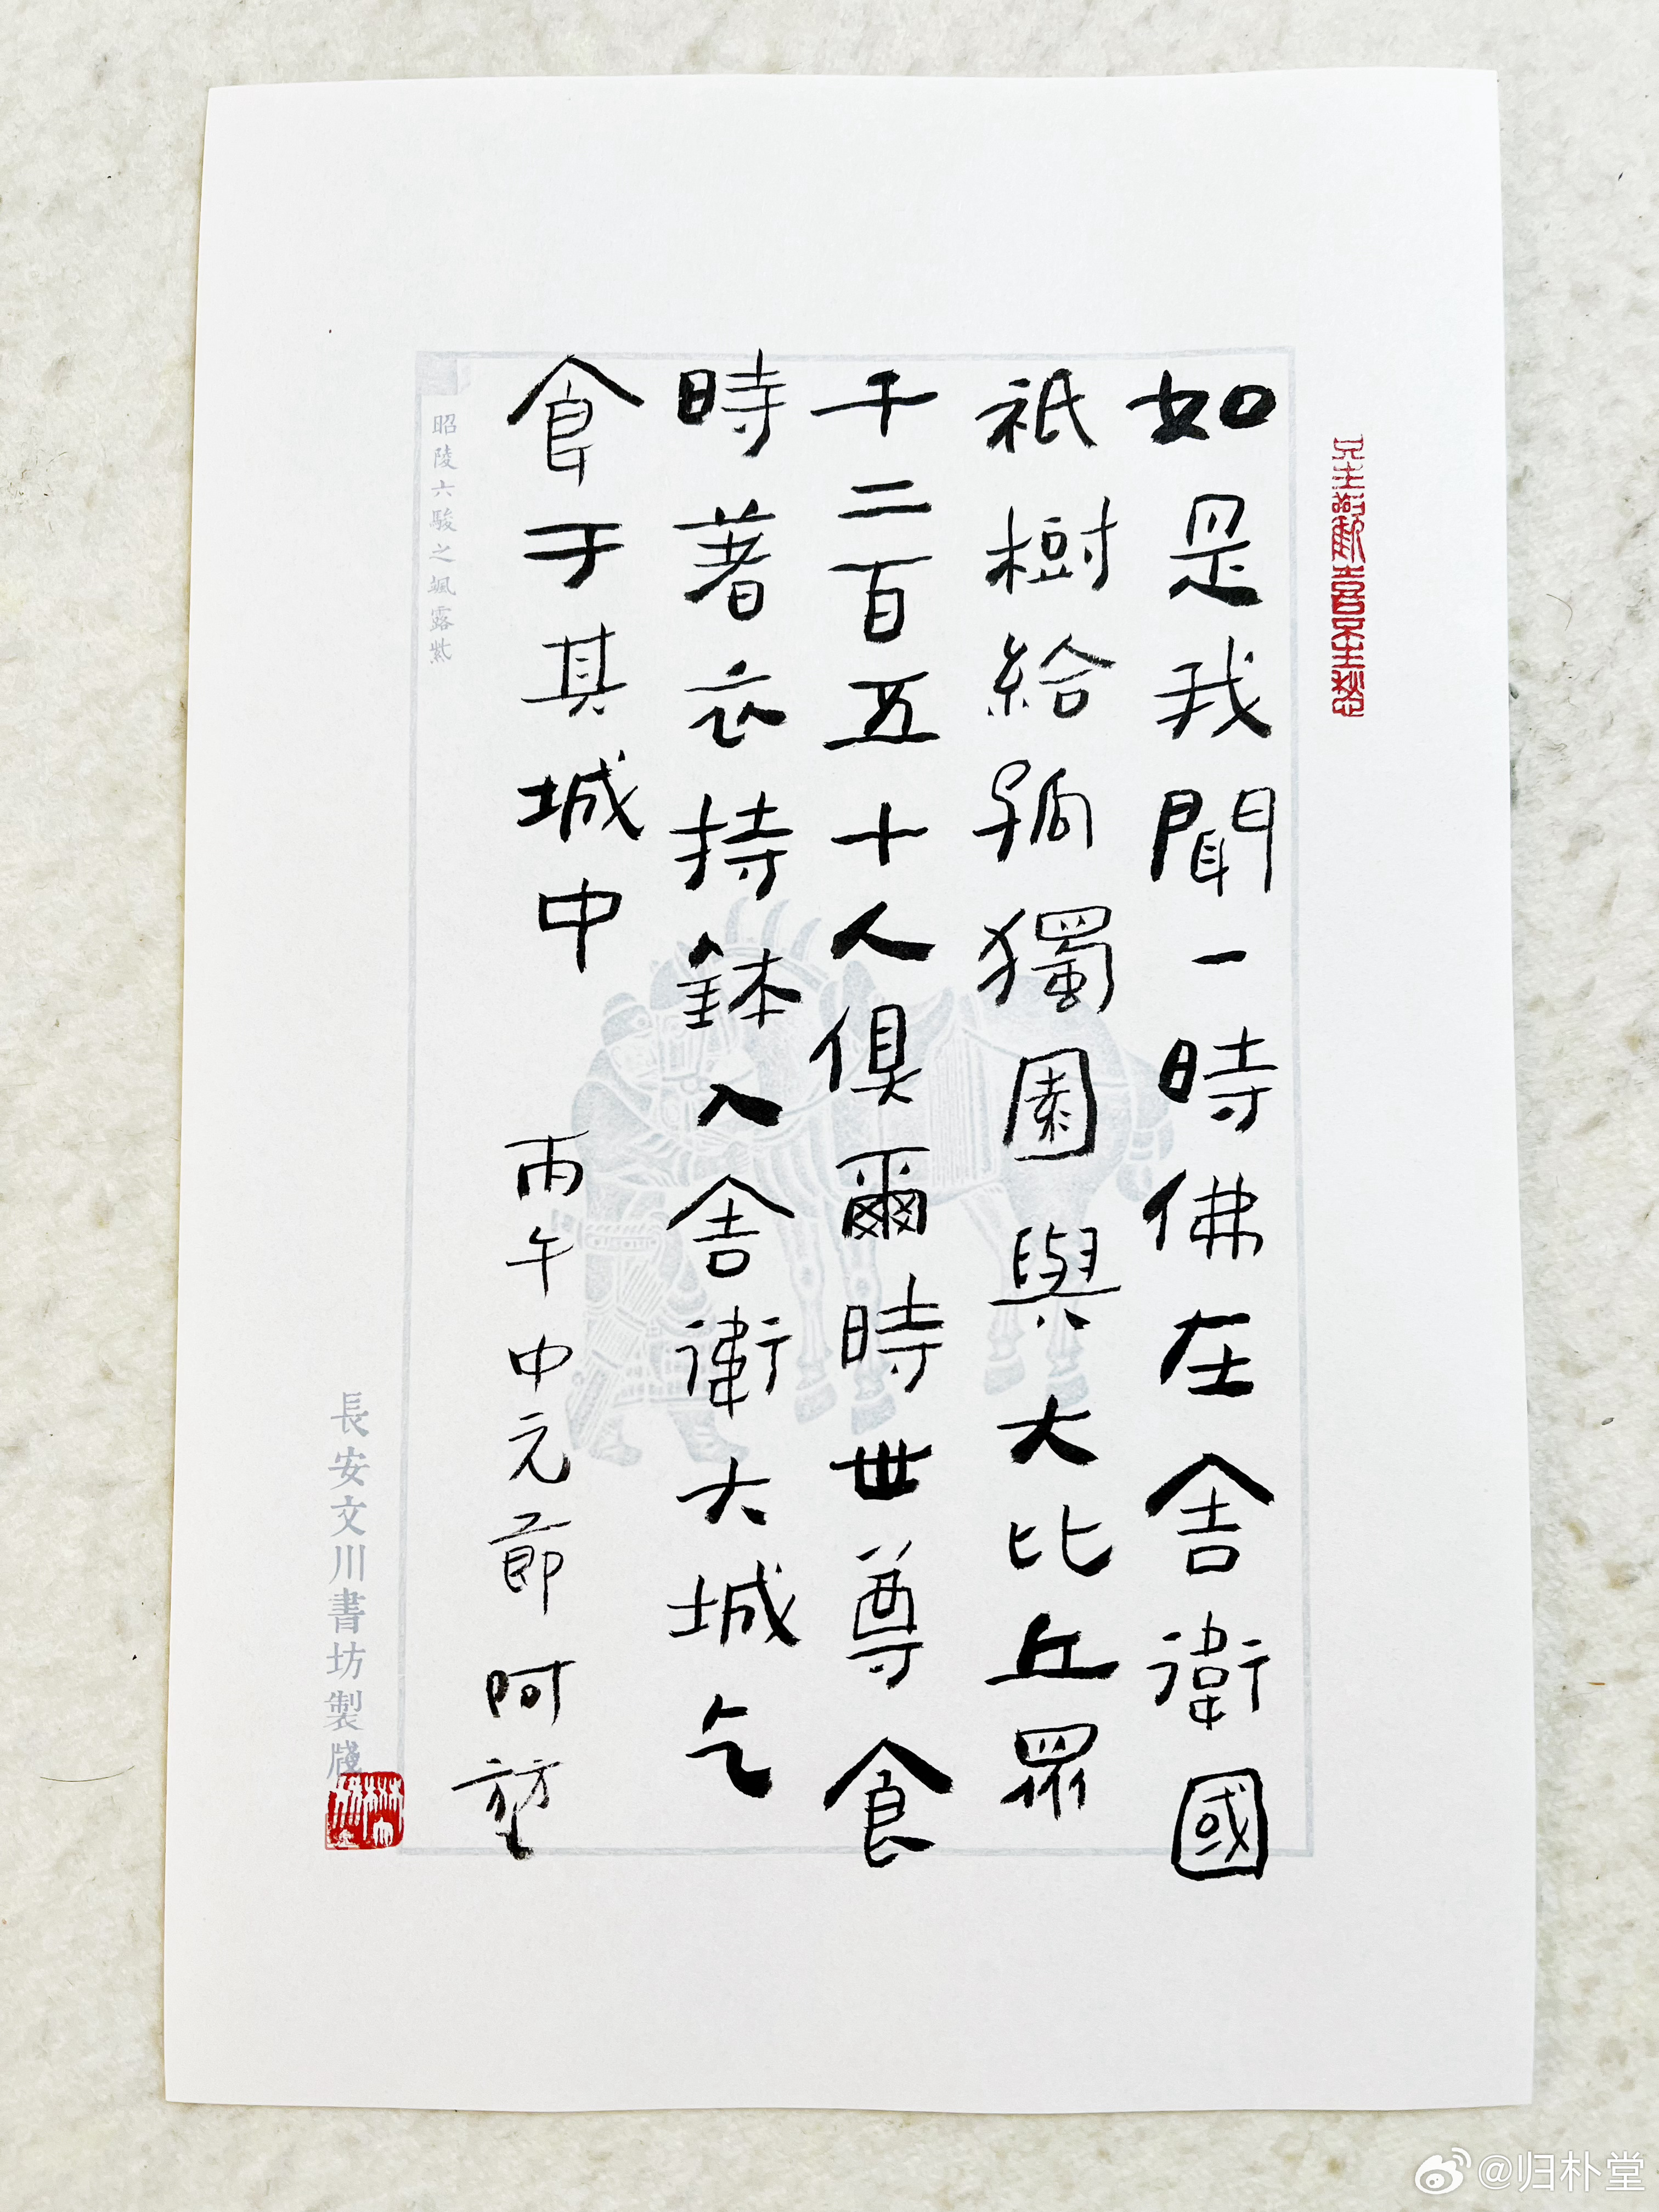 如是我聞一時佛在舍衛國
祇樹給孤獨園與大比丘眾
千二百五十人俱爾時世尊食
時著衣持鉢入舍衛大城乞
食于其城中
丙午中元節阿堃
昭陵六駿之颯露紫
長安文川書坊製牋
@归朴堂